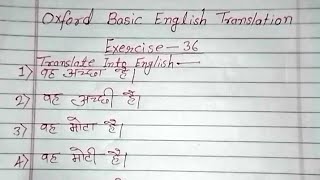 Oxford Basic English Translation
Exercise-36
Translate Into English-
1) वह अच्छा है।
2) वह अच्छी है।
3) वह मोटा है।
4) वह मोटी है।